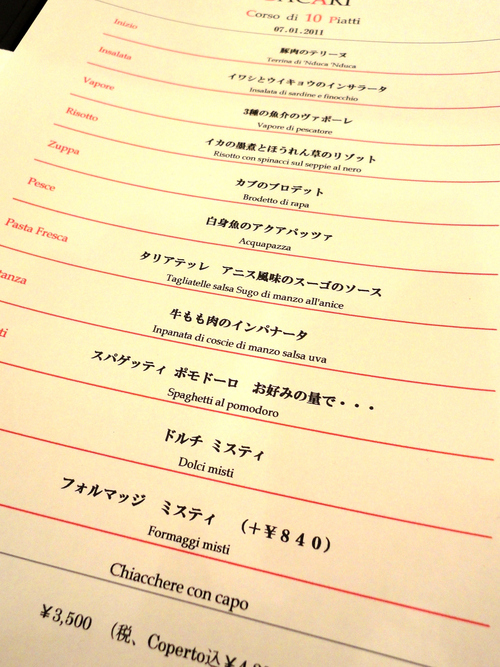 Corso di 10 Piatti
07.01.2011
Inizio
豚肉のテリーヌ
Terrina di 'Nduca 'Nduca
Insalata
イワシとウイキョウのインサラータ
Insalata di sardine e finocchio
Vapore
3種の魚介のヴァポーレ
Vapore di pescatore
Risotto
イカの墨煮とほうれん草のリゾット
Risotto con spinacci sul seppie al nero
Zuppa
カブのブロデット
Brodetto di rapa
Pesce
白身魚のアクアパッツァ
Acquapazza
Pasta Fresca
タリアテッレ アニス風味のスーゴのソース
Tagliatelle salsa Sugo di manzo all'anice
牛もも肉のインパナータ
Inpanata di coscie di manzo salsa uva
スパゲッティ ポモドーロ お好みの量で・・・
Spaghetti al pomodoro
ドルチ ミスティ
Dolci misti
フォルマッジ ミスティ (+¥840)
Formaggi misti
Chiacchere con capo
¥3,500 (税、Coperto込